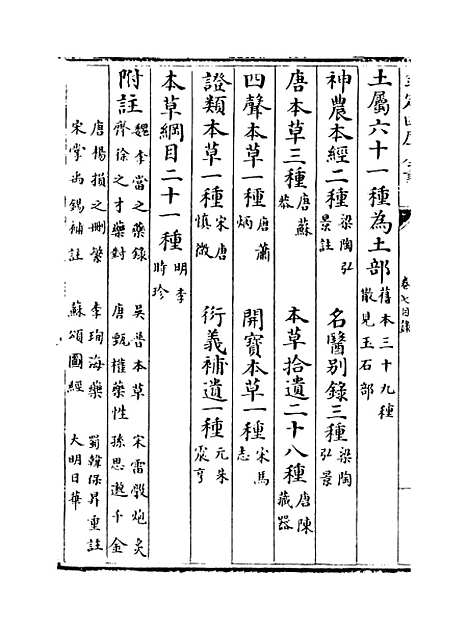 土屬六十一種為土部舊本三十九種散見玉石部
神農本經二種梁陶弘景註 名醫别錄三種梁陶弘景
唐本草三種唐蘇恭 本草拾遺二十八種唐陳藏器
四聲本草一種唐蕭炳 開寶本草一種宋馬志
證類本草一種宋唐慎微 衍義補遺一種元朱震亨
本草綱目二十一種明李時珍
附註
魏李當之藥錄 吳普本草 宋雷斆炮炙
齊徐之才藥對 唐甄權藥性 孫思邈千金
唐楊損之刪繁 李珣海藥 蜀韓保昇重註
宋掌禹錫補註 蘇頌圖經 大明日華